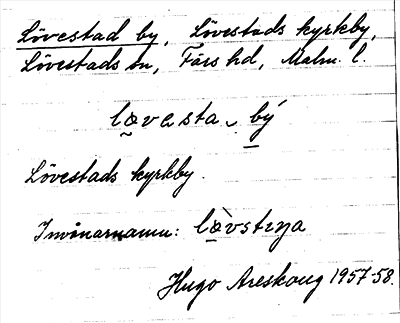 Lövestad by, Lövestads kyrkby,
Lövestads sn, Färs hd, Malm. l.
lɶvesta bý
Lövestads kyrkby.
Invånarnamn: lɶ̀vstıŋa
Hugo Areskoug 1957-58.